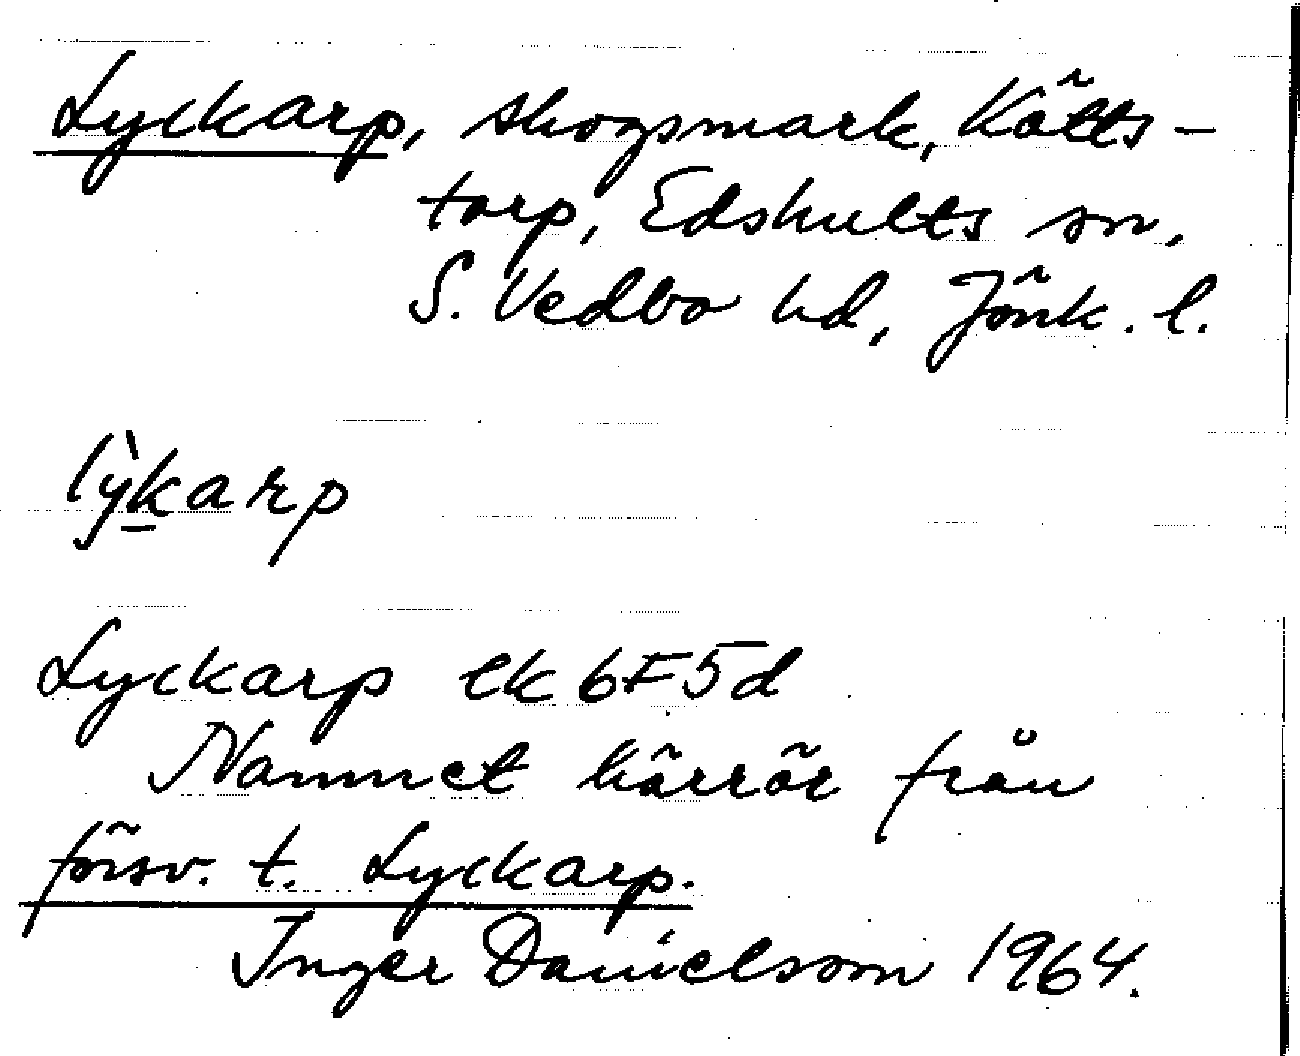 Lyckarp, skogsmark, Költs-
torp, Edshults sn,
S. Vedbo hd, Jönk. l.
lỳkarp
Lyckarp ek 6F5d
Namnet härrör från
försv. t. Lyckarp.
Inger Danielsom 1964.